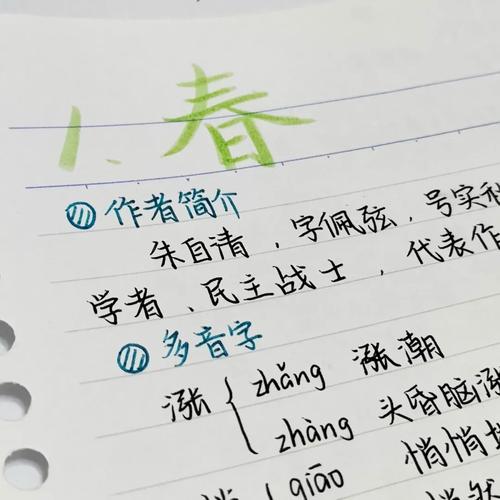 1、春
作者简介
朱自清，字佩弦，号实秋
学者、民主战士，代表作
多音字
涨 zhǎng 涨潮
zhàng 头昏脑涨
悄 qiāo 悄悄
悄然